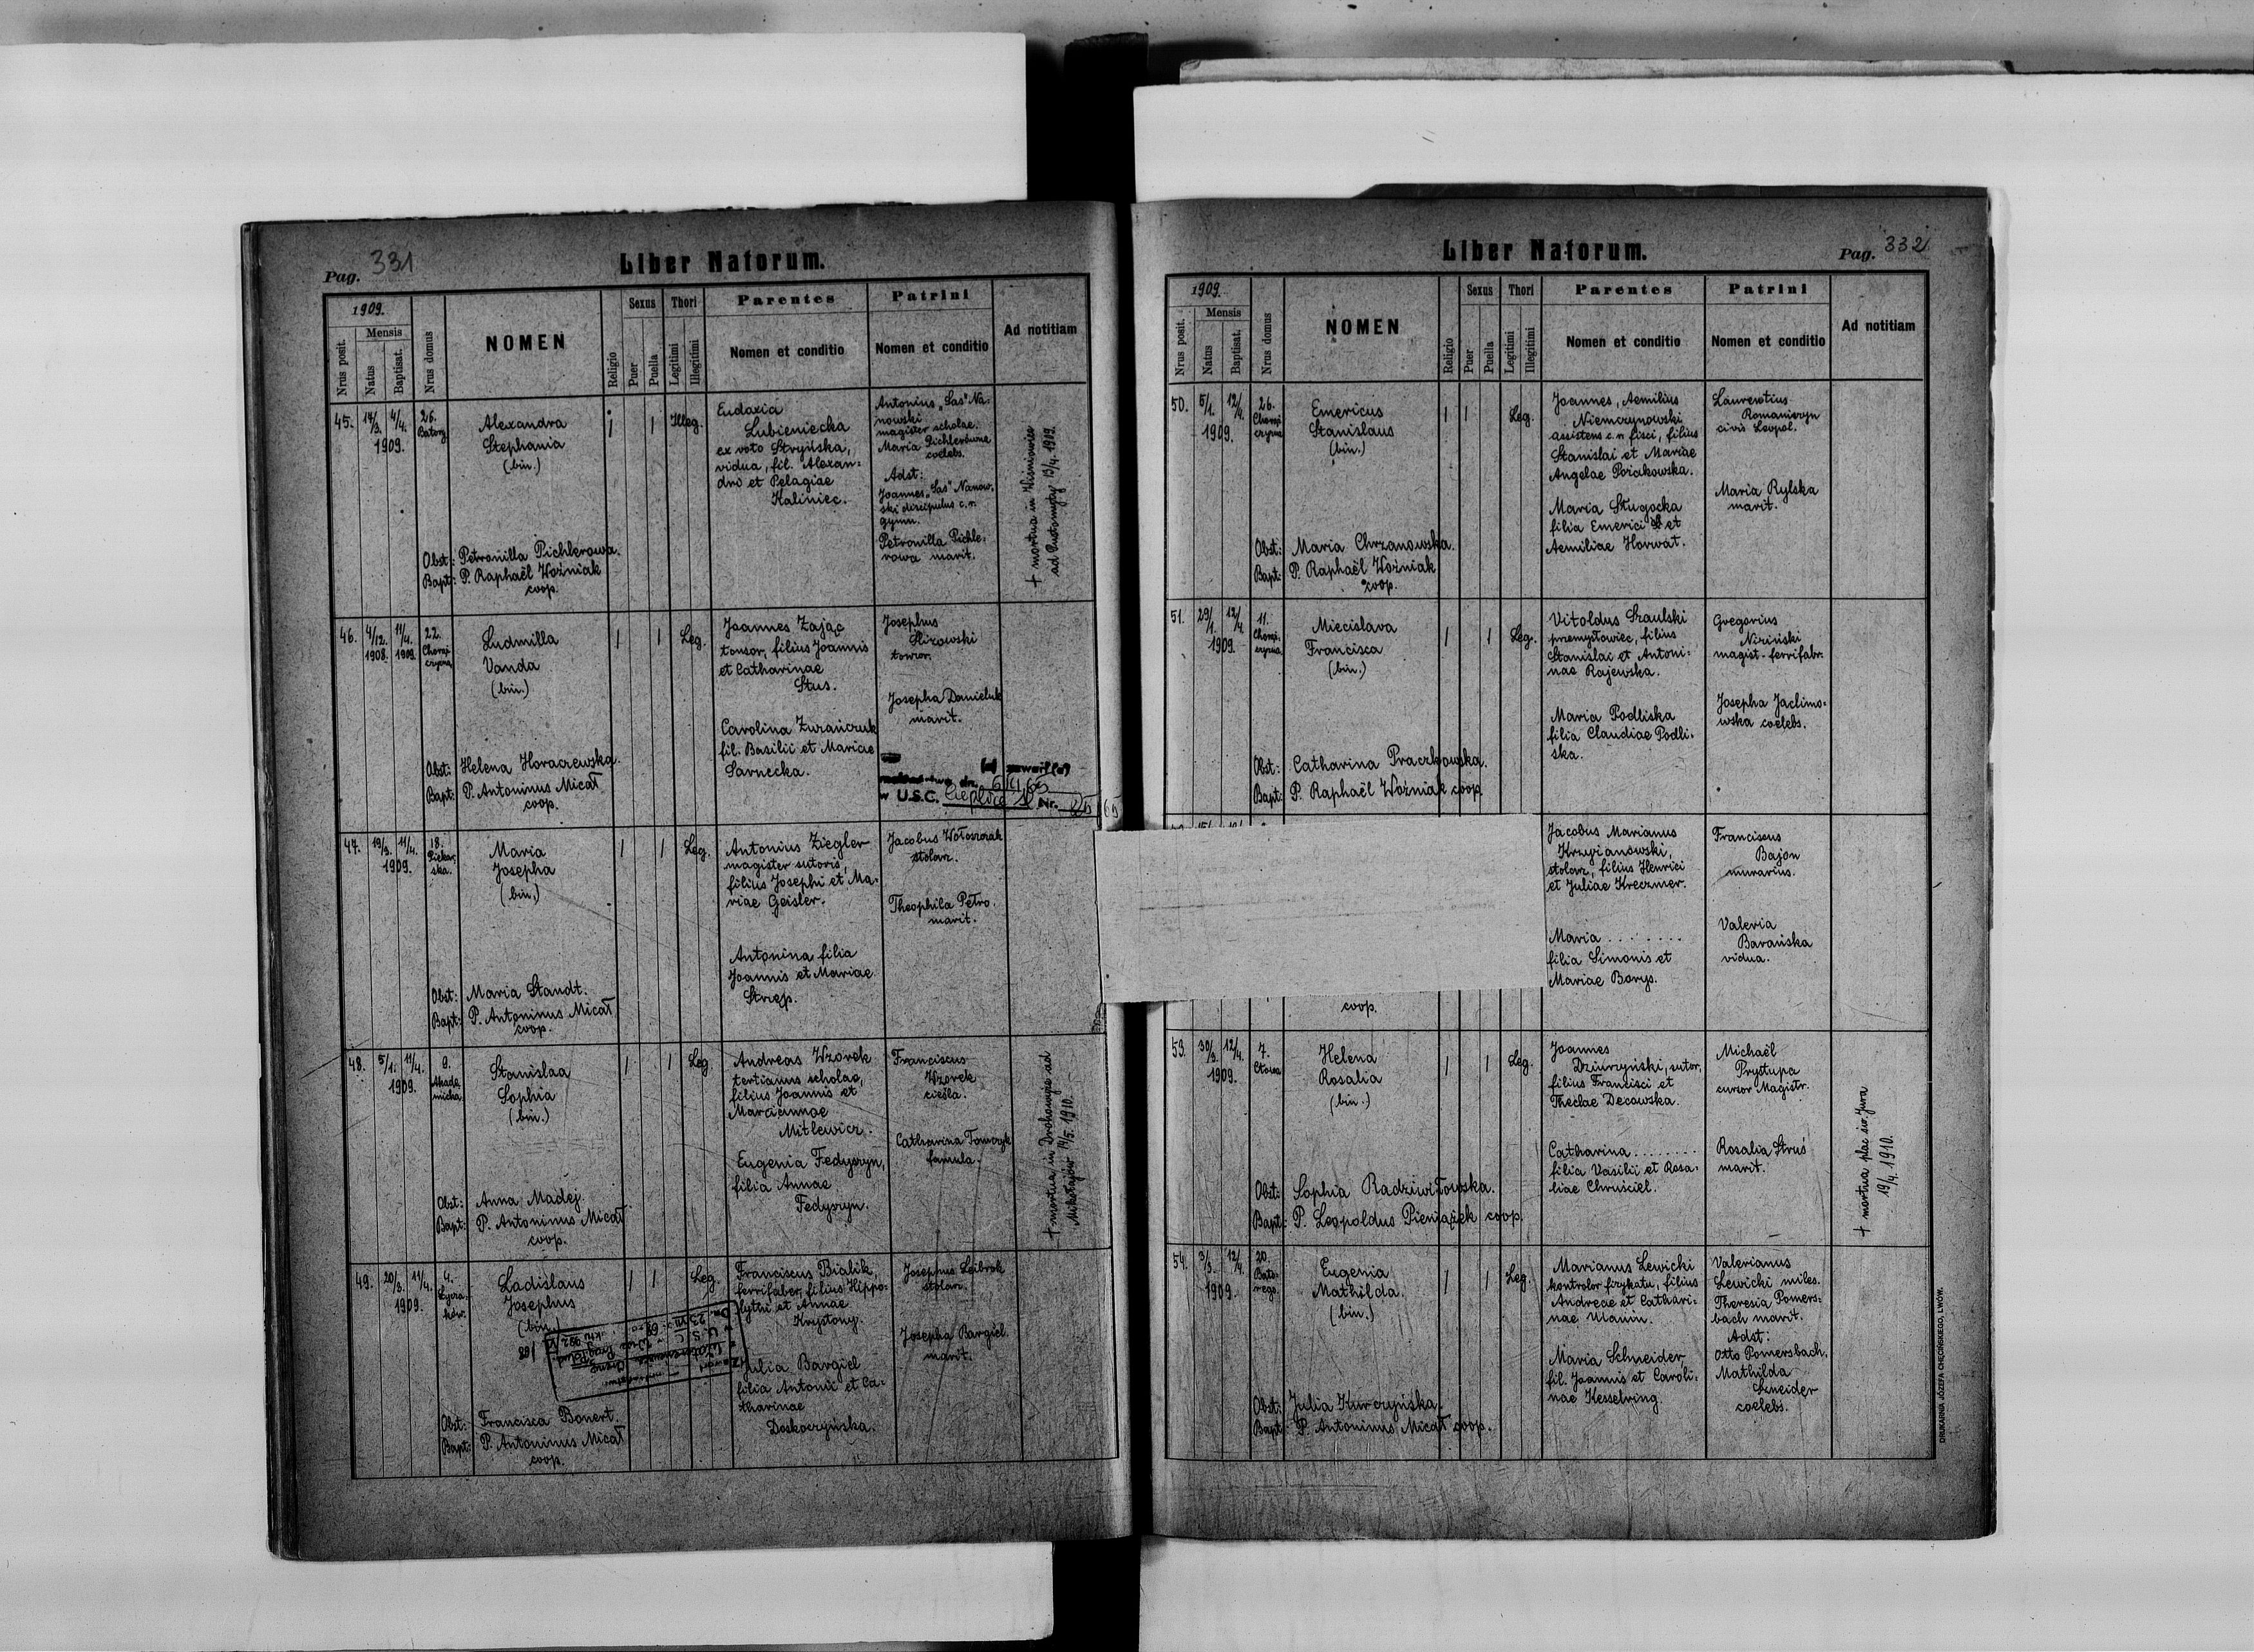 Pag. 331
Liber Natorum.
1909.
Nrus posit.
Mensis
Natus
Baptisat.
Nrus domus
NOMEN
Religio
Sexus
Puer
Puella
Thori
Legitimi
Illegitimi
Parentes
Nomen et conditio
Patrini
Nomen et conditio
Ad notitiam
45. 14/3. 4/4.
1909.
26.
Batory
Alexandra
Stephania
(bin.)
Illeg.
Eudoxia
Lubieniecka
ex voto Stryńska,
vidua, fil. Alexan-
dri et Pelagiae
Kaliniec.
Antonius "Sas" Na-
nowski
magister scholae.
Maria Pichlerówna
coelebs.
Adst:
Joannes "Sas" Nanow-
ski discipulus c. r.
gymn.
Petronilla Pichle-
rowa marit.
† mortua in Wiśniowice
ad Rudomyty 13/4. 1919.
Obst: Petronilla Pichlerowa.
Bapt: P. Raphaël Woźniak
coop.
46. 4/12. 11/4.
1908. 1909.
22.
Chorąż
czyzna
Ludmilla
Vanda
(bin.)
Leg.
Joannes Zając
tonsor, filius Joannis
et Catharinae
Stus.
Carolina Żurańczuk
fil. Basilii et Mariae
Sarnecka.
Josephus
Ślizowski
tonsor.
Josepha Danieluk
marit.
w U.S.C. Cieplice Nr. 25/65
Obst: Helena Horaczewska.
Bapt: P. Antoninus Micał
coop.
47. 19/3. 11/4.
1909.
18.
Piekar-
ska.
Maria
Josepha
(bin.)
Leg.
Antonius Ziegler
magister sutoris,
filius Josephi et Ma-
riae Geisler.
Antonina filia
Joannis et Mariae
Stręp.
Jacobus Wołoszczak
stolarz.
Theophila Petro
marit.
Obst: Maria Standt.
Bapt: P. Antoninus Micał
coop.
48. 5/1. 11/4.
1909.
9.
Akade-
micka
Stanislaa
Sophia
(bin.)
Leg.
Andreas Wzorek
tertianus scholae,
filius Joannis et
Mariannae
Mitlewicz.
Eugenia Fedyszyn,
filia Annae
Fedyszyn.
Franciscus
Wzorek
cieśla.
Catharina Tomczyk
famula.
† mortua in Drohowyże ad
Mikołajów 14/5. 1910.
Obst: Anna Madej.
Bapt: P. Antoninus Micał
coop.
49. 20/3. 11/4.
1909.
4.
Łycza-
ków.
Ladislaus
Josephus
(bin.)
Leg.
Franciscus Bialik,
ferrifaber, filius Hippo-
lythi et Annae
Krystony.
Julia Bargiel
filia Antonii et Ca-
tharinae
Doskoczyńska.
Josephus Leibrok
stolarz.
Josepha Bargiel
marit.
Obst: Francisca Bonert
Bapt: P. Antoninus Micał
coop.
Liber Natorum.
Pag. 332
1909.
Nrus posit.
Mensis
Natus
Baptisat.
Nrus domus
NOMEN
Religio
Sexus
Puer
Puella
Thori
Legitimi
Illegitimi
Parentes
Nomen et conditio
Patrini
Nomen et conditio
Ad notitiam
50. 5/1. 12/4.
1909.
26.
Chorąż
czyzna
Emericus
Stanislaus
(bin.)
Leg.
Joannes, Aemilius
Niemczynowski
assistens c. r. fisci, filius
Stanislai et Mariae
Angelae Porakowska.
Maria Sługocka
filia Emerici et
Aemiliae Horwat.
Laurentius
Romaniszyn
civis Leopol.
Maria Rylska
marit.
Obst: Maria Chrzanowska.
Bapt: P. Raphaël Woźniak
coop.
51. 29/1. 12/4.
1909.
11.
Chorąż
czyzna
Miecislava
Francisca
(bin.)
Leg.
Vitoldus Szaulski
przemysłowiec, filius
Stanislai et Antoni-
nae Rajewska.
Maria Podliska
filia Claudiae Podli-
ska.
Gregorius
Niziński
magist. ferrifabr.
Josepha Jaclimo-
wska coelebs.
Obst: Catharina Praczkowska.
Bapt: P. Raphaël Woźniak coop.
Jacobus Marianus
Krzyianowski,
stolarz, filius Henrici
et Juliae Kreczmer.
Maria ........
filia Simonis et
Mariae Borys.
Franciscus
Bajon
murarius.
Valeria
Barańska
vidua.
coop.
53. 30/3. 12/4.
1909.
7.
Helena
Rosalia
(bin.)
Leg.
Joannes
Dziurzyński, sutor,
filius Francisci et
Theclae Decowska.
Catharina ........
filia Vasilii et Rosa-
liae Chruściel.
Michaël
Prystupa
cursor Magistr.
Rosalia Struś
marit.
† mortua plac św. Jura
19/4. 1910.
Obst: Sophia Radziwiłowska.
Bapt: P. Leopoldus Pieniążek coop.
54. 3/3. 12/4.
1909.
20.
Bato-
rego.
Eugenia
Mathilda.
(bin.)
Leg.
Marianus Lewicki
kontrolor fizykatu, filius
Andreae et Cathari-
nae Maurin.
Maria Schneider
fil. Joannis et Caroli-
nae Kesselring.
Valerianus
Lewicki miles.
Theresia Pomers-
bach marit.
Adst:
Otto Pomersbach.
Mathilda
Szneider
coelebs.
Obst: Julia Kurczyńska.
Bapt: P. Antoninus Micał coop.
DRUKARNIA JÓZEFA CHĘCIŃSKIEGO, LWÓW.